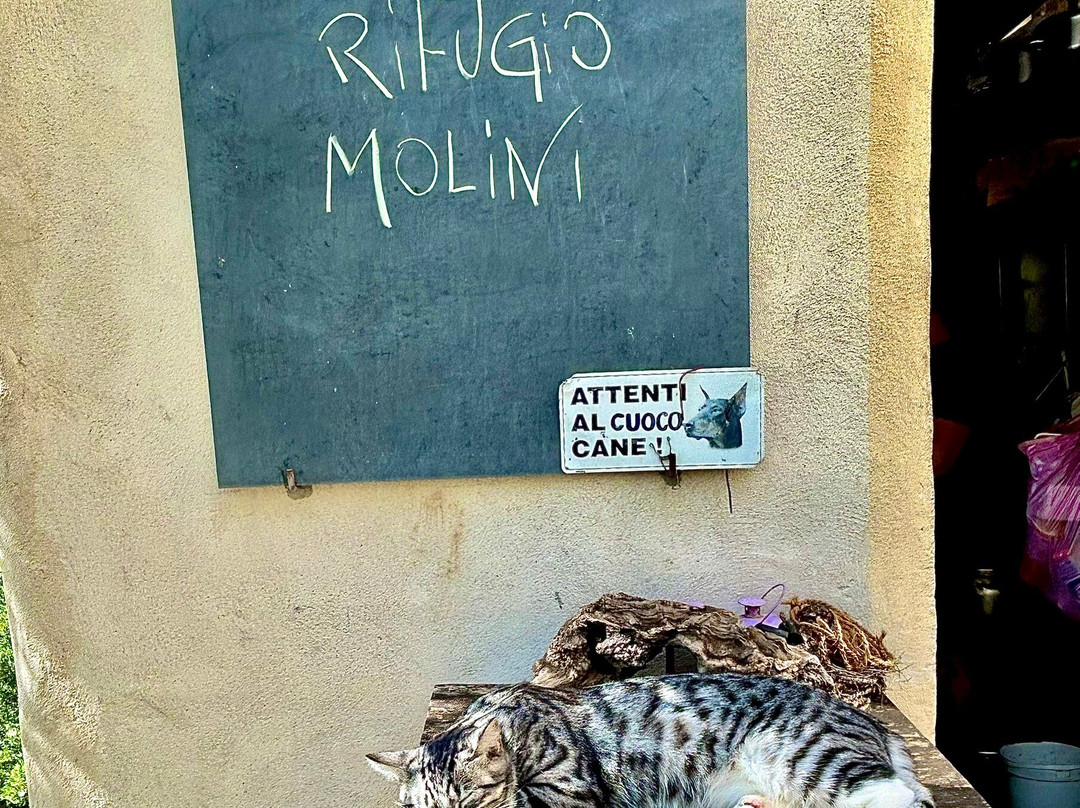 RiFUGiO
MOLiNi
ATTENTI
AL CUOCO
CANE !